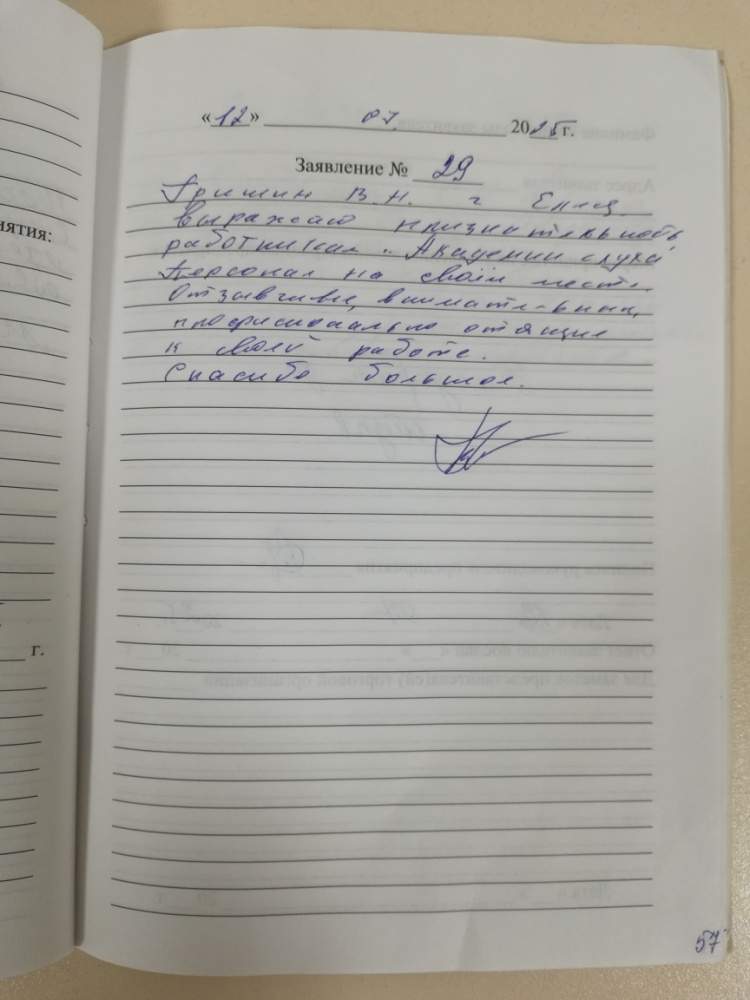 «12» 07 2025 г.
Заявление № 29
Гришин В.Н. г Елец
выражаю признательность
работникам "Академии слуха"
Персонал на своём месте.
Отзывчивые, внимательные,
профессионально
к своей работе.
Спасибо большое.
ЯТИЯ:
г.
57